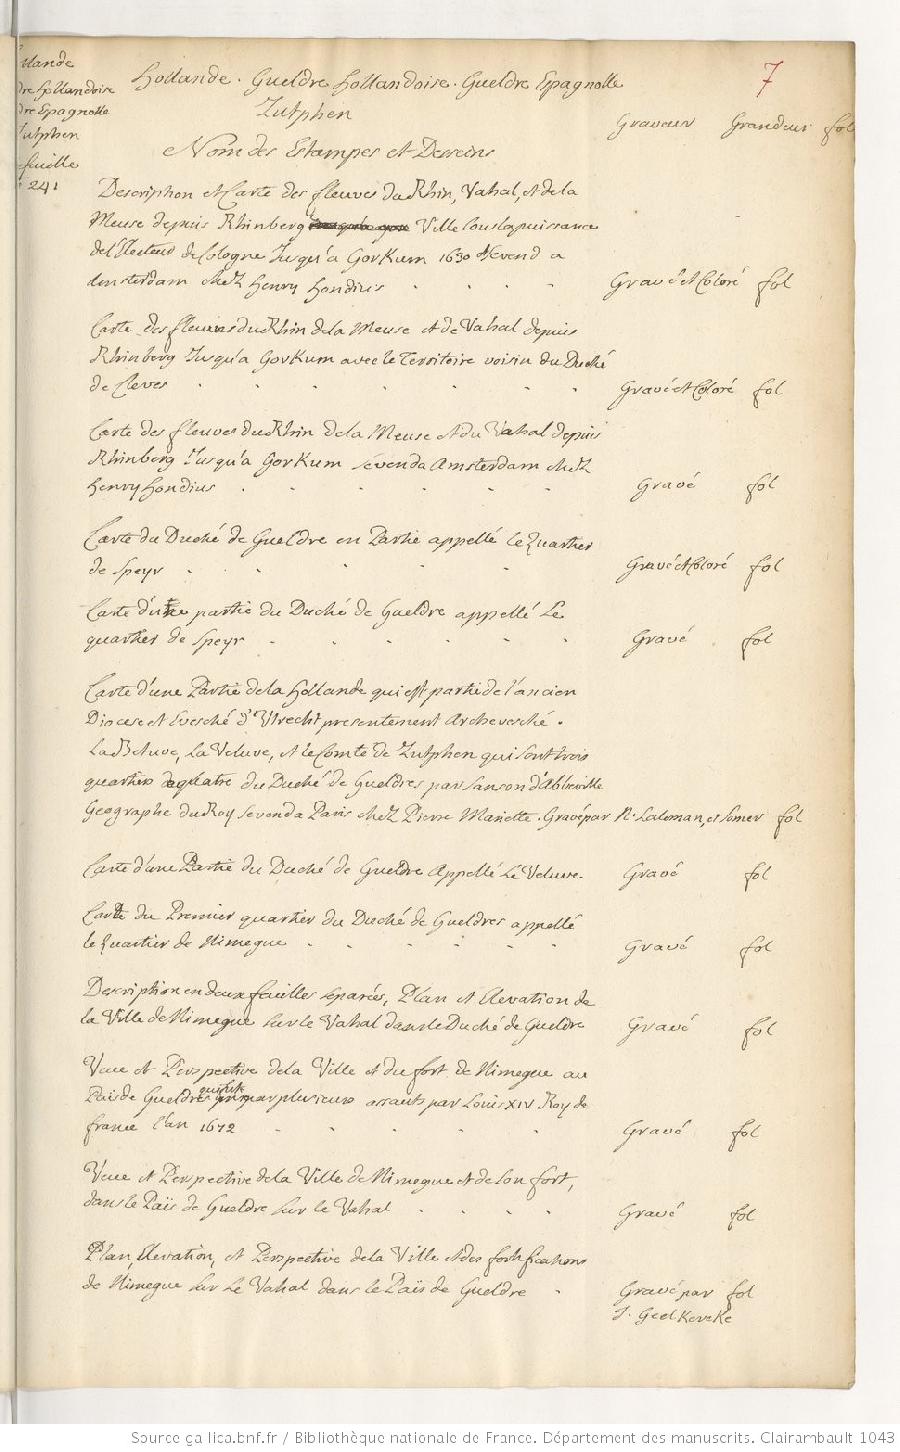 llande
dre hollandoise
dre Espagnolle
Zutphen
feuille
241
7
Hollande. Gueldre hollandoise. Gueldre Espagnolle
Zutphen
Graveur Grandeur fol
Noms des Estampes et Desseins
Description et Carte des fleuves du Rhin, Vahal, et de la
Meuse depuis Rhinberg Ville sous la puissance
de l'Electeur de Cologne Jusqu'a Gorkum 1630 se vend a
Amsterdam chez Henry Hondius . . . . Gravé et Coloré fol
Carte des fleuves du Rhin de la Meuse et de Vahal depuis
Rhinberg Jusqu'a Gorkum avec le Territoire voisin du Duché
de Cleves . . . . . . . Gravé et Coloré fol
Carte des fleuves du Rhin de la Meuse et du Vahal depuis
Rhinberg Jusqu'a Gorkum se vend a Amsterdam chez
Henry Hondius . . . . . . Gravé fol
Carte du Duché de Gueldre en Partie appellé le Quartier
de Speyr . . . . . Gravé et Coloré fol
Carte d'une partie du Duché de Gueldre appellé Le
quartier de Speyr . . . . . . Gravé fol
Carte d'une Partie de la Hollande qui est partie de l'ancien
Diocese et Evesché d'Utrecht presentement Archevesché.
La Betuve, La Veluve, et le Comté de Zutphen qui sont trois
quartiers de quatre du Duché de Gueldres par Sanson d'Abbeville
Geographe du Roy se vend a Paris chez Pierre Mariette. Gravé par R. Laloman, et Somer fol
Carte d'une Partie du Duché de Gueldre Appellé Le Veluve. Gravé fol
Carte du Premier quartier du Duché de Gueldres appellé
le Quartier de Nimegue . . . . . . Gravé fol
Description en deux feuilles separées, Plan et Elevation de
la Ville de Nimegue sur le Vahal dans le Duché de Gueldre Gravé fol
Veue et Perspective de la Ville et du fort de Nimegue au
Païs de Gueldres qui fut pris par plusieurs assauts par Louis XIV Roy de
france l'an 1672 . . . . . Gravé fol
Veue et Perspective de la Ville de Nimegue et de son fort,
dans le Païs de Gueldre sur le Vahal . . . . Gravé fol
Plan, Elevation, et Perspective de la Ville et des fortifications
de Nimegue sur le Vahal dans le Païs de Gueldre . Gravé par fol
J. Geelkercke
Source gallica.bnf.fr / Bibliothèque nationale de France. Département des manuscrits. Clairambault 1043